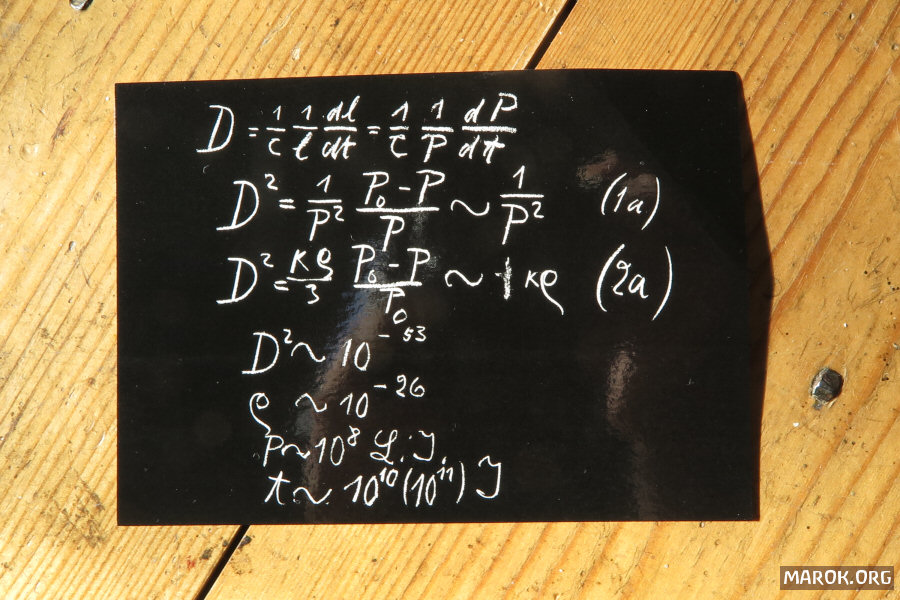 D = 1/c 1/l dl/dt = 1/c 1/P dP/dt
D² = 1/P² (P₀ − P)/P ~ 1/P² (1a)
D² = κρ/3 (P₀ − P)/P₀ ~ κρ (2a)
D² ~ 10⁻⁵³
ρ ~ 10⁻²⁶
P ~ 10⁸ L. J.
t ~ 10¹⁰ (10¹¹) J
MAROK.ORG